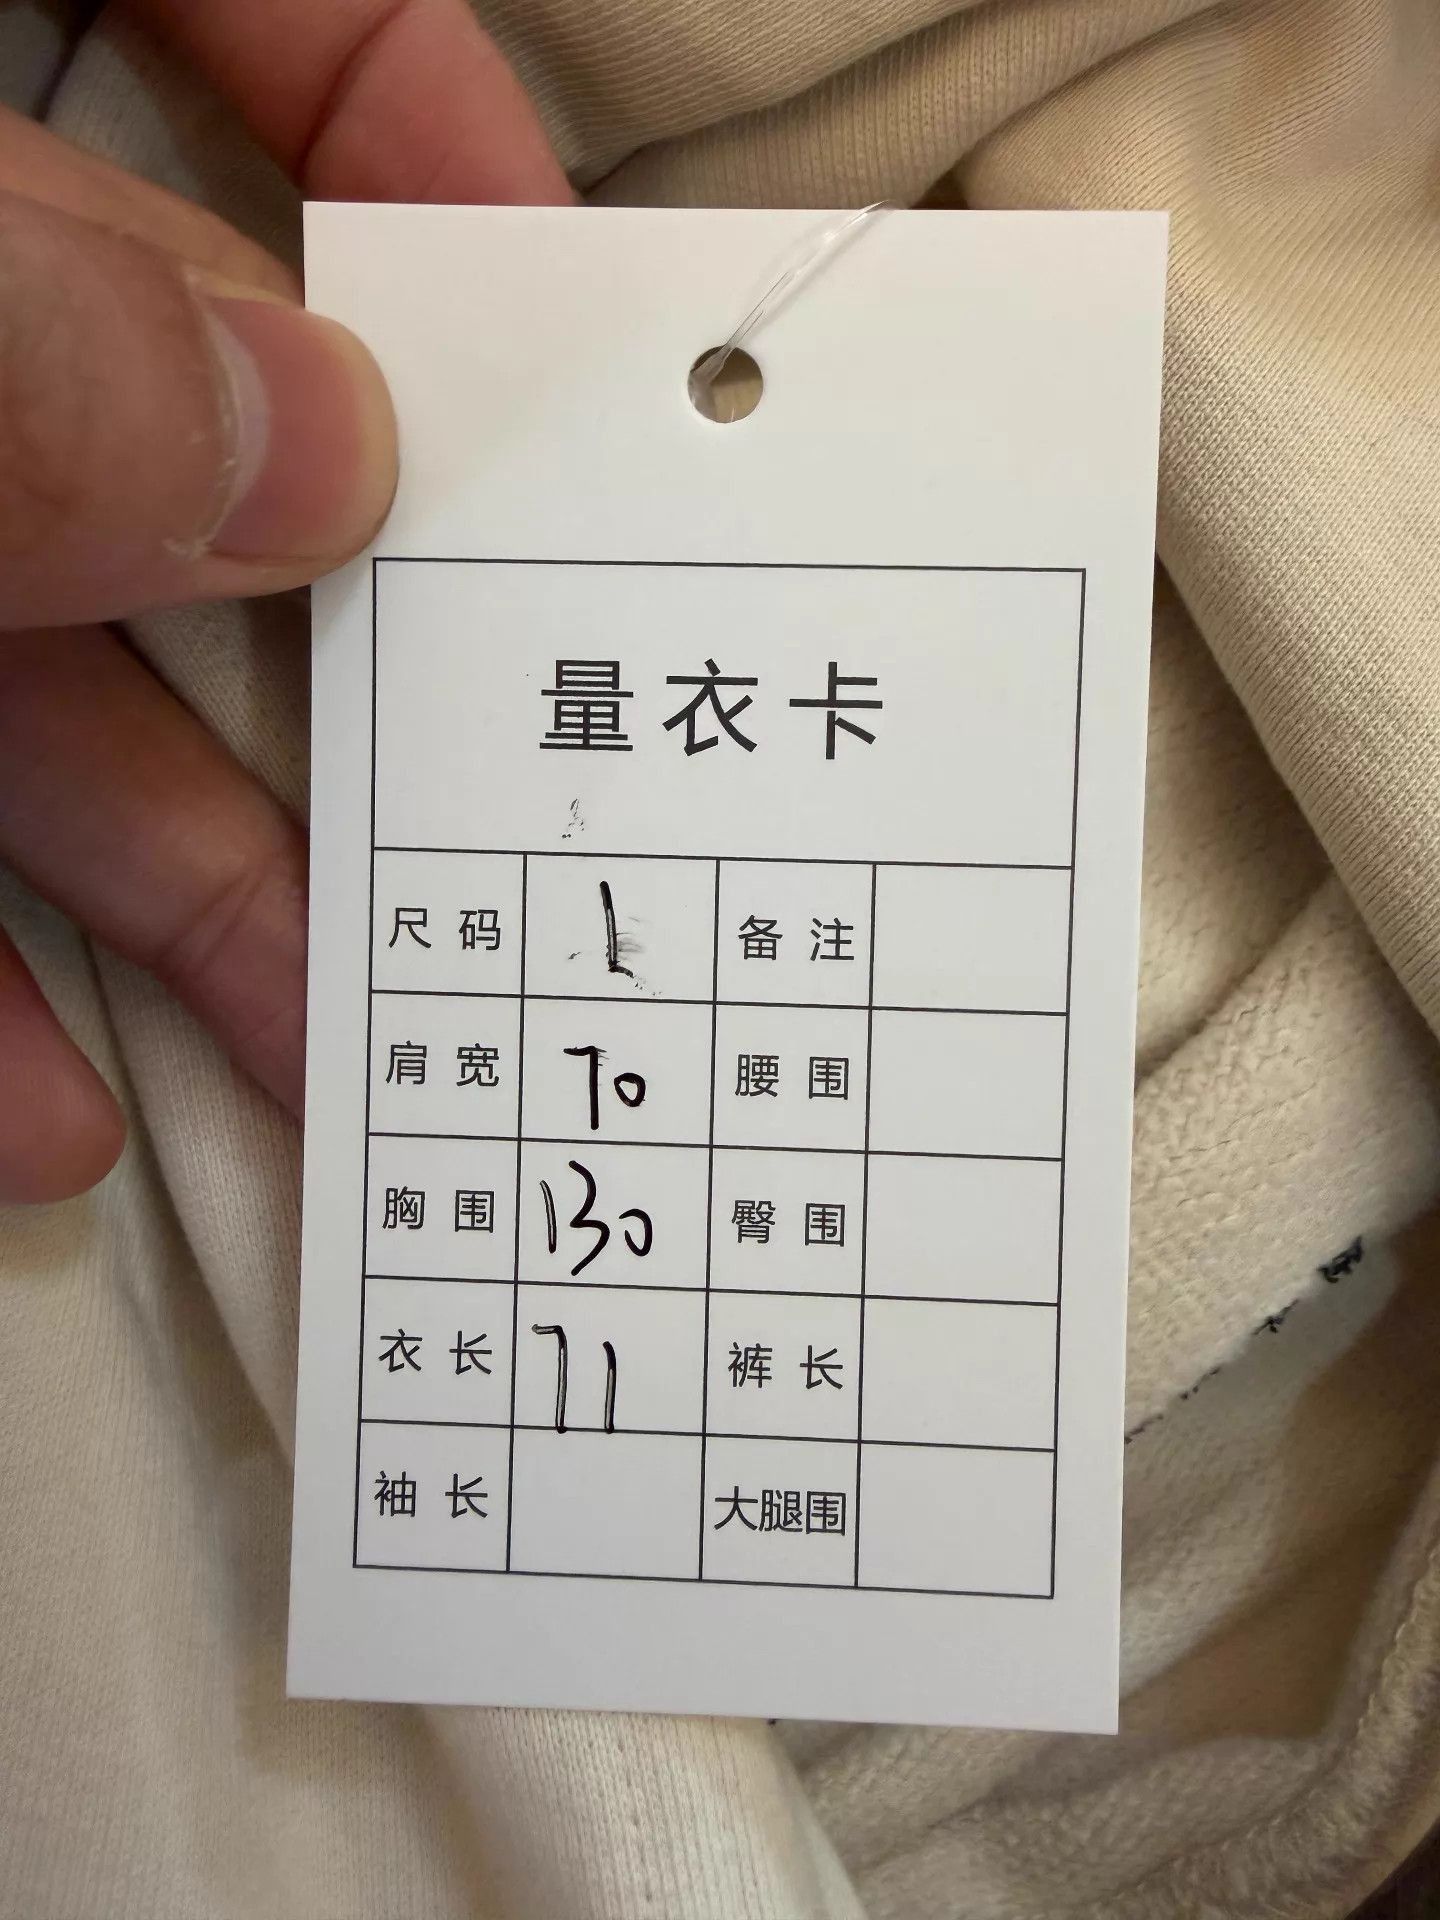 量衣卡
尺码 L 备注
肩宽 70 腰围
胸围 130 臀围
衣长 71 裤长
袖长 大腿围